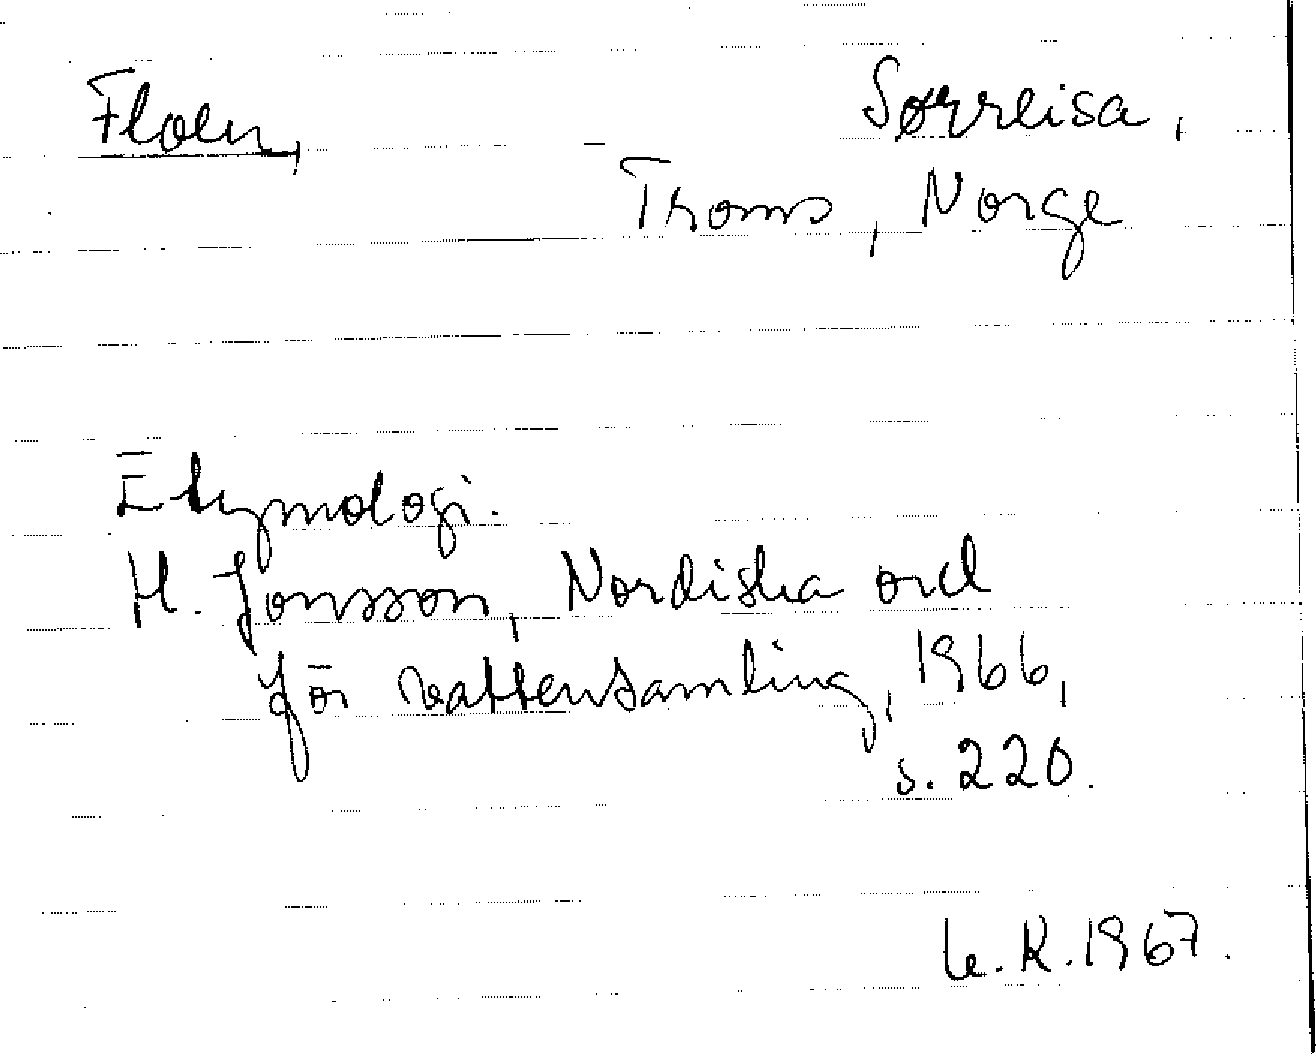 Floen, Sørreisa,
Troms, Norge
Etymologi.
H. Jonsson, Nordiska ord
för vattensamling, 1966,
s. 220.
K. 1967.